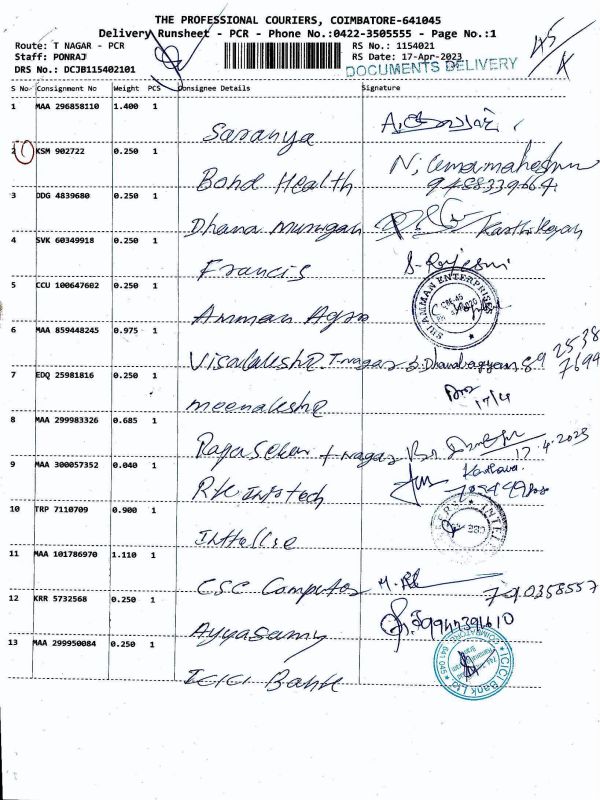 THE PROFESSIONAL COURIERS, COIMBATORE-641045
Delivery Runsheet - PCR - Phone No.:0422-3505555 - Page No.:1
Route: T NAGAR - PCR RS No.: 1154021
Staff: PONRAJ RS Date: 17-Apr-2023
DRS No.: DCJB115402101 DOCUMENTS DELIVERY
S No Consignment No Weight PCS Consignee Details Signature
1 MAA 296858110 1.400 1
Saranya
2 KSM 902722 0.250 1
Bohd Health 9488339664
3 DDG 4839680 0.250 1
Dhana Murugan Karthikeyan
4 SVK 60349918 0.250 1
Francis
5 CCU 100647602 0.250 1
Amman Agro SRI AMMAN ENTERPRISES
6 MAA 859448245 0.975 1
T-nagar 89 2538
7699
7 EDQ 25981816 0.250 1
17/4
8 MAA 299983326 0.685 1
Rajasekar T nagar 17.4.2023
9 MAA 300057352 0.040 1
RK Infotech
10 TRP 7110709 0.900 1
11 MAA 101786970 1.110 1
CSC Computer 790358557
12 KRR 5732568 0.250 1
Ayyasamy
13 MAA 299950084 0.250 1
ICICI Bank ICICI Bank Ltd